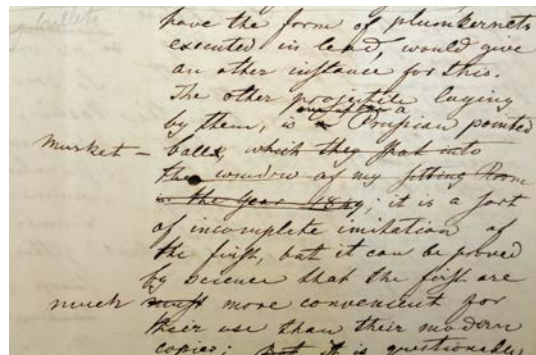 bullets
have the form of plumbernets
executed in lead, would give
an other instance for this.
The other projectile laying
by them, is a Prussian pointed
musket – balls, which they shot into
the window of my sitting Room
in the Year 1849; it is a sort
of incomplete imitation of
the first, but it can be proved
by science that the first are
much must more convenient for
their use than their modern
copies; but it is questionable